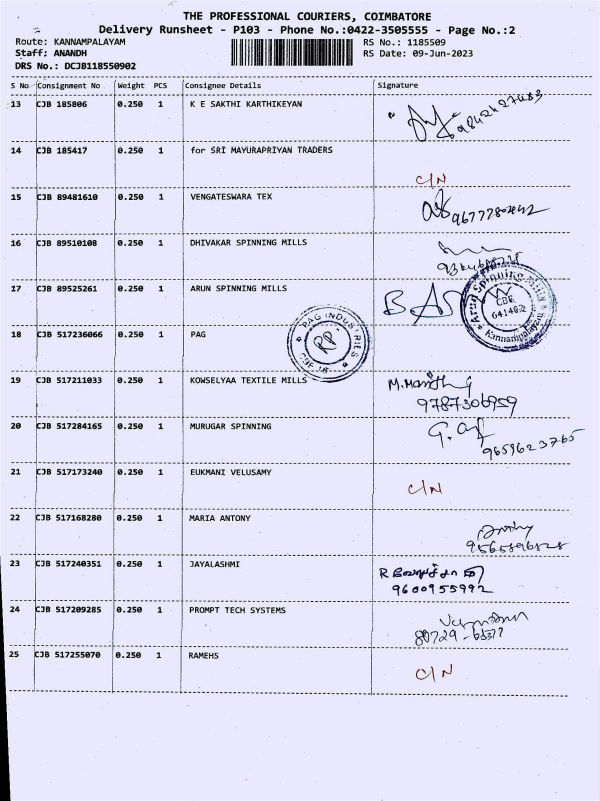 THE PROFESSIONAL COURIERS, COIMBATORE
Delivery Runsheet - P103 - Phone No.:0422-3505555 - Page No.:2
Route: KANNAMPALAYAM RS No.: 1185509
Staff: ANANDH RS Date: 09-Jun-2023
DRS No.: DCJB118550902
S No Consignment No Weight PCS Consignee Details Signature
13 CJB 185806 0.250 1 K E SAKTHI KARTHIKEYAN 9842427483
14 CJB 185417 0.250 1 for SRI MAYURAPRIYAN TRADERS
C/N
15 CJB 89481610 0.250 1 VENGATESWARA TEX
16 CJB 89510108 0.250 1 DHIVAKAR SPINNING MILLS
17 CJB 89525261 0.250 1 ARUN SPINNING MILLS BAS
Arun Spinning Mills CBE 641402 Kannampalayam
PAG INDUSTRIES RP
18 CJB 517236066 0.250 1 PAG
19 CJB 517211033 0.250 1 KOWSELYAA TEXTILE MILLS
9787306959
20 CJB 517284165 0.250 1 MURUGAR SPINNING
9659623765
21 CJB 517173240 0.250 1 EUKMANI VELUSAMY
C/N
22 CJB 517168280 0.250 1 MARIA ANTONY
23 CJB 517240351 0.250 1 JAYALASHMI
9600955992
24 CJB 517209285 0.250 1 PROMPT TECH SYSTEMS
25 CJB 517255070 0.250 1 RAMEHS
C/N